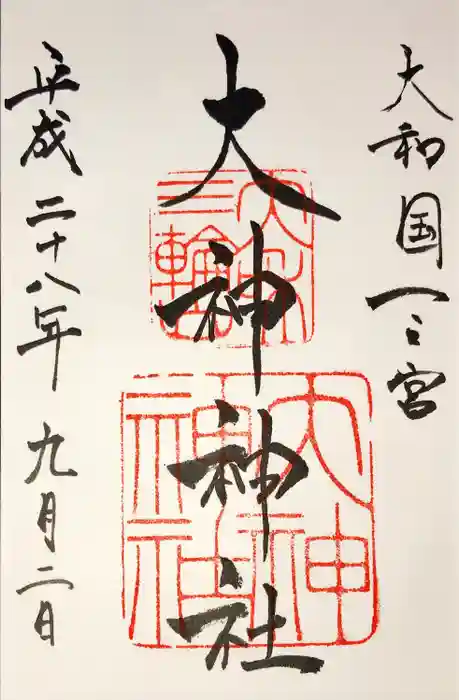 大和国一之宮
大神神社
平成二十八年九月二日
大神
神社